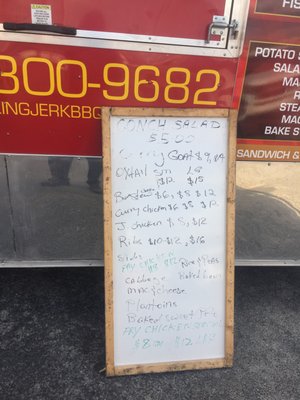 300-9682
INGJERKBBQ
FIS
POTATO S
SALA
MA
R
STE
MAC
BAKE S
SANDWICH &
CONCH SALAD
$5.00
Curry Goat $9, $14
OXTAIL sm LG
$12 $15
$6, $8 $12
Curry chicken $6 $8 $12
J. chicken $8, $12
Ribs $10 $12, $16
Sides
FRY CHICKEN
Rice & Peas
Cabbage
mac & cheese
Planteins
Baked sweet
FRY CHICKEN
$8 sm $12